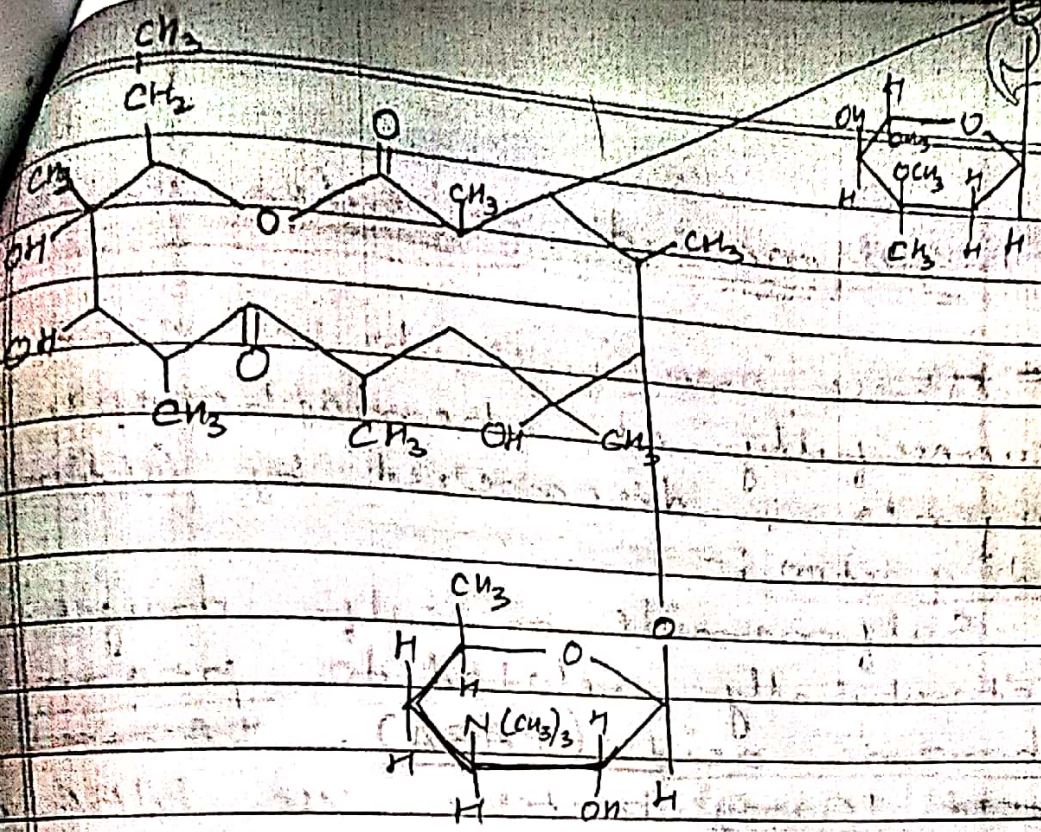 CH3
CH2
CH3
OH
O
O
CH3
CH3
OH
CH3
O
CH3
OH
CH3
O
H
OH
O
CH3
OCH3
H
H
CH3
H
H
O
CH3
H
O
H
N(CH3)3
H
H
H
OH
H